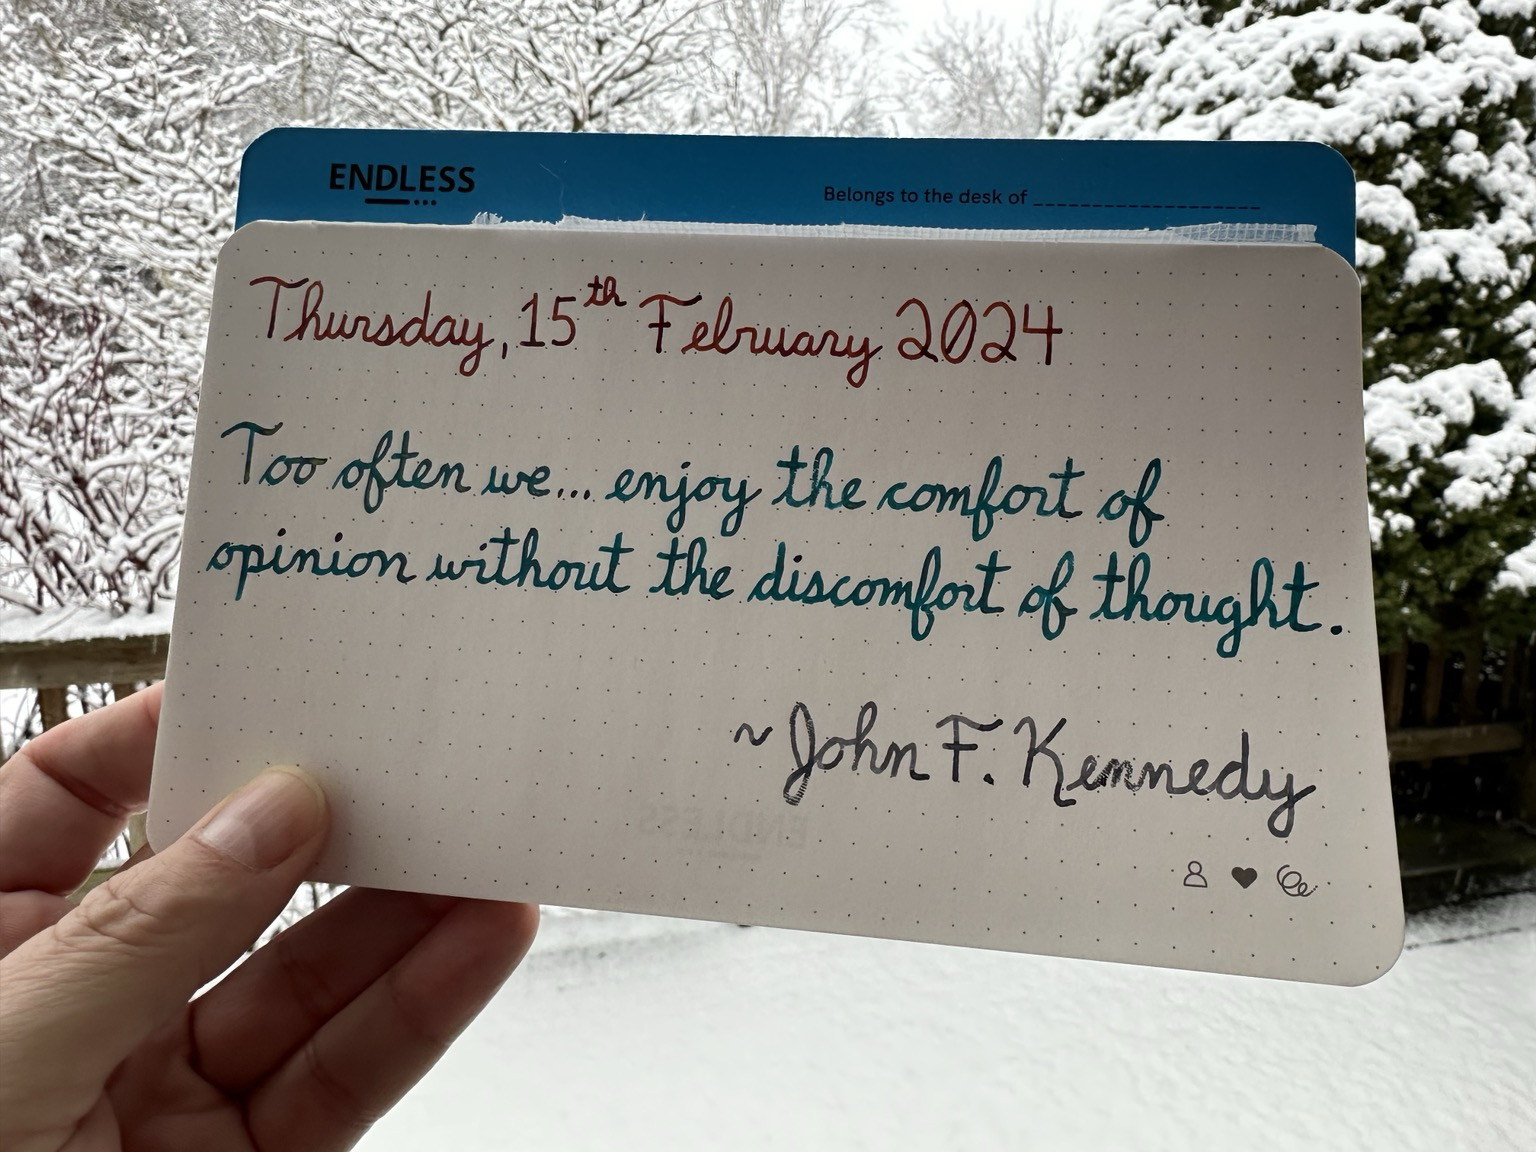 ENDLESS
Belongs to the desk of
Thursday, 15th February 2024
Too often we... enjoy the comfort of
opinion without the discomfort of thought.
~ John F. Kennedy
ENDLESS